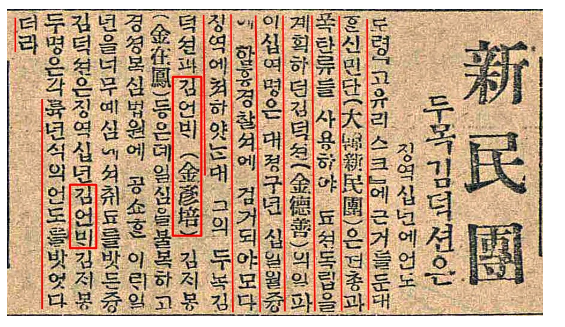 新民團
두목김덕션은
징역십년에언도
로령『고유리스크』에근거를둔대
한신민단(大韓新民團)은권총과
폭탄류를 사용하야 됴션독립을
계획하던김덕션(金德善)의외파
이십여명은 대정구년 십일월중
에 함흥경찰셔에 검거되야모다
징역에쳐하얏는대 그의 두목김
덕션과김언비(金彦培) 김지봉
(金在鳳)등은데일심을불복하고
경셩복심법원에 공소한 이래일
년을너무예심에셔취됴를밧든중
김덕션은징역십년김언비김지봉
두명은각륙년식의언도를밧엇다
더라